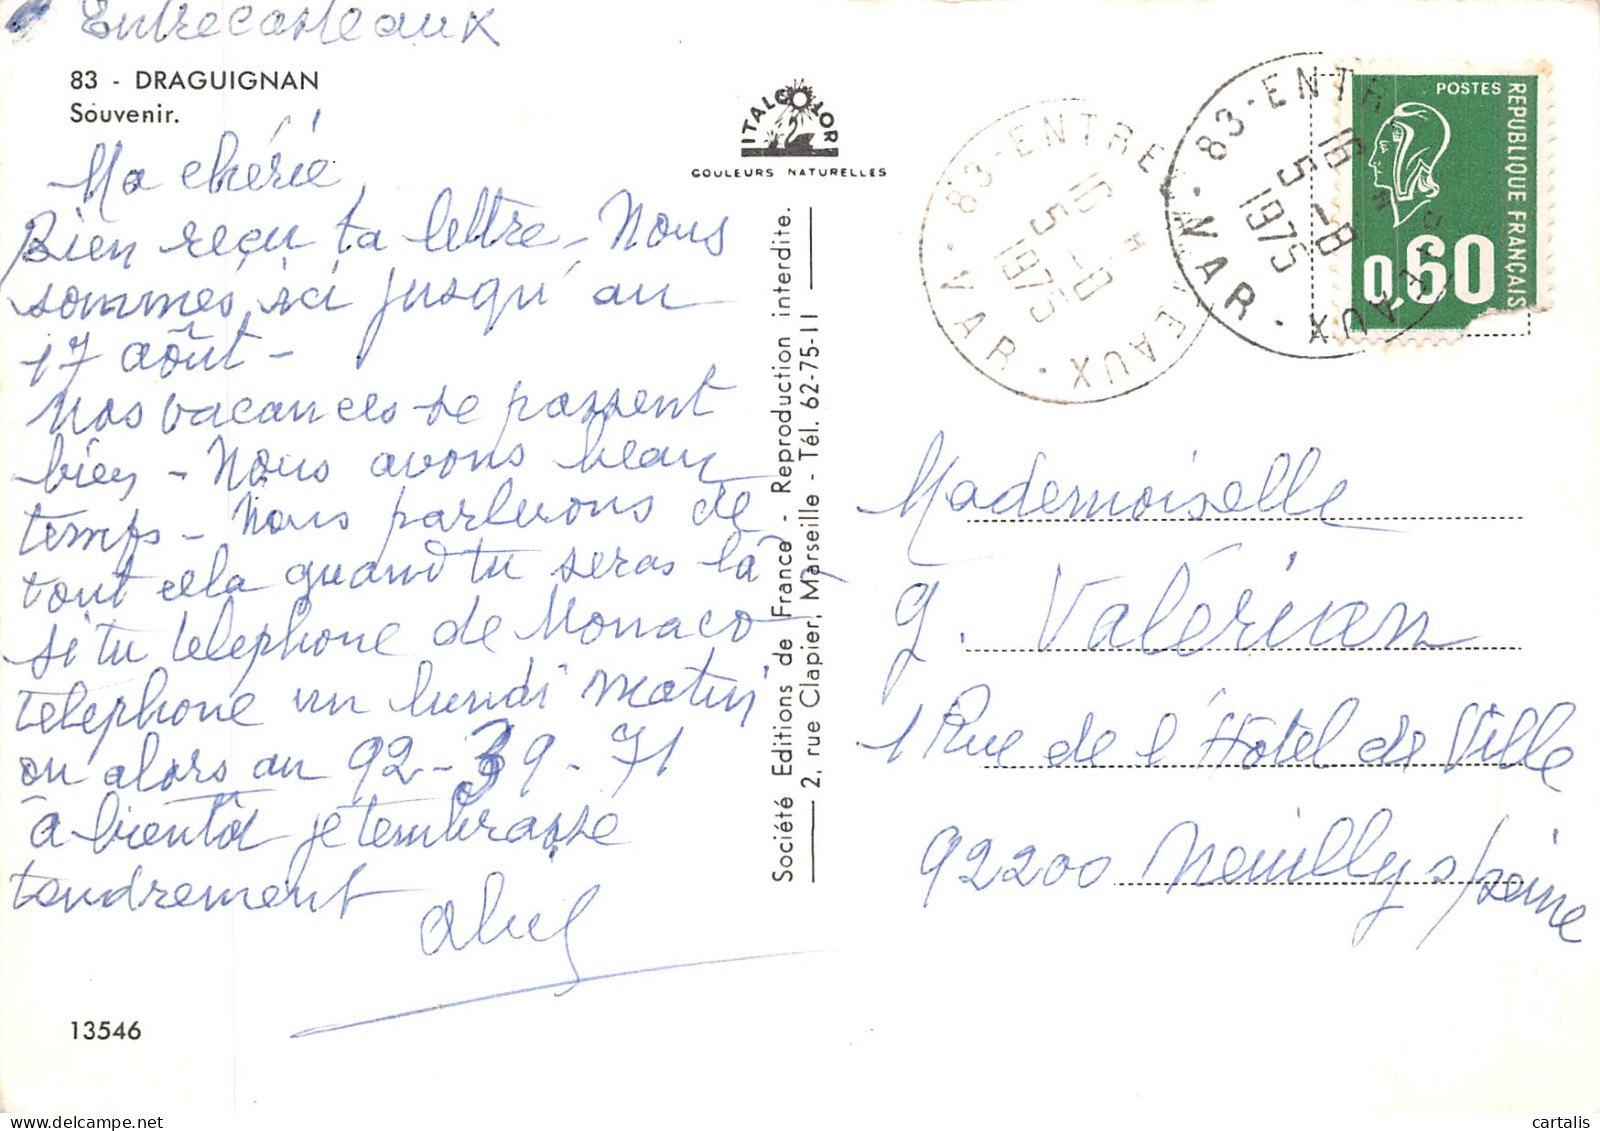 Entrecasteaux
83 - DRAGUIGNAN
Souvenir.
Ma chérie
Bien reçu ta lettre - Nous
sommes ici jusqu'au
17 août -
Nos vacances se passent
bien - Nous avons beau
temps - Nous parlerons de
tout cela quand tu seras là
si tu telephone de Monaco
telephone un lundi matin
ou alors au 92-39-71
a bientôt je t'embrasse
tendrement
13546
ITALCOLOR
COULEURS NATURELLES
Société Editions de France - Reproduction interdite.
2, rue Clapier, Marseille - Tél. 62-75-11
83 - ENTRECASTEAUX
VAR
16 H
5 -8
1975
83 - ENTRECASTEAUX
VAR
16 H
5 -8
1975
POSTES
REPUBLIQUE FRANÇAISE
0,60
Mademoiselle
g. Valérian
1 Rue de l'Hôtel de Ville
92200 Neuilly s/seine
cartalis
www.delcampe.net